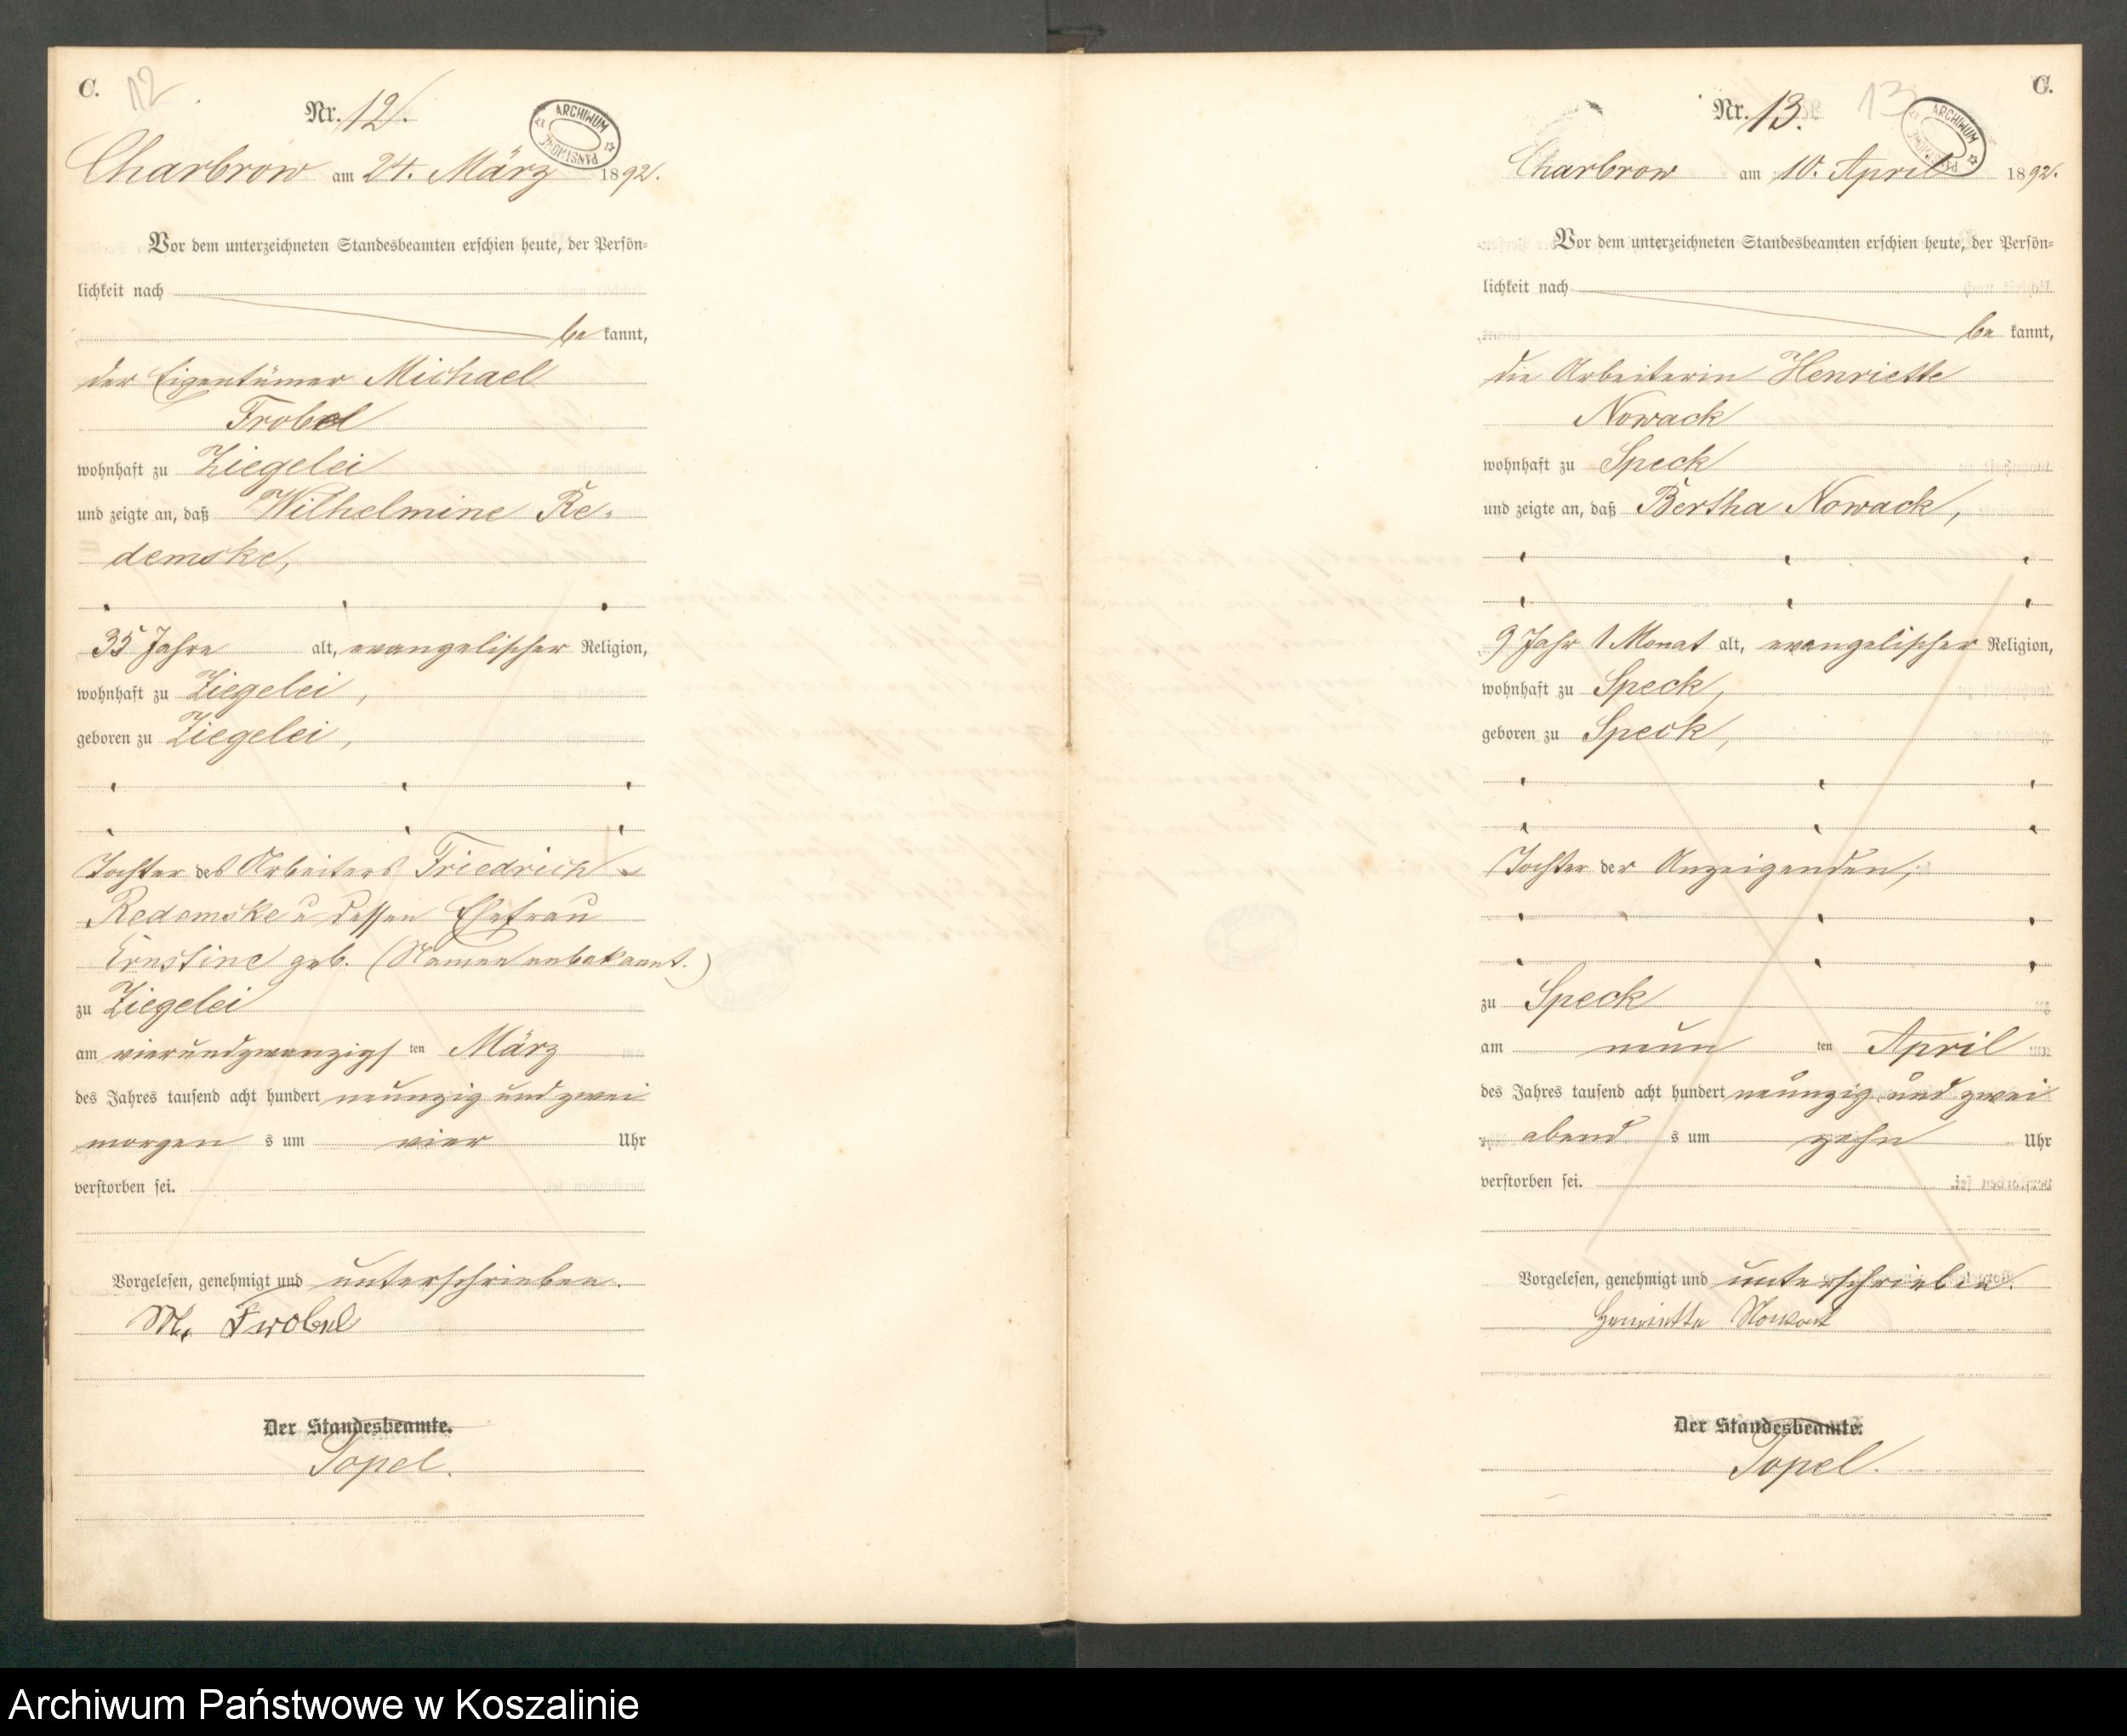 C. 12
Nr. 12.
ARCHIWUM PAŃSTWOWE
Charbrow am 24. März 1892.
Vor dem unterzeichneten Standesbeamten erschien heute, der Persön-
lichkeit nach
be kannt,
der Eigentümer Michael
Frobel
wohnhaft zu Ziegelei
und zeigte an, daß Wilhelmine Re-
demske,
35 Jahre alt, evangelischer Religion,
wohnhaft zu Ziegelei,
geboren zu Ziegelei,
Tochter des Arbeiters Friedrich
Redemske u dessen Ehefrau
Ernstine geb. (Namen unbekannt.)
zu Ziegelei
am vierundzwanzigs ten März
des Jahres tausend acht hundert neunzig und zwei
morgen s um vier Uhr
verstorben sei.
Vorgelesen, genehmigt und unterschrieben.
M. Frobel
Der Standesbeamte.
Topel.
C.
Nr. 13. 13
ARCHIWUM
Charbrow am 10. April 1892.
Vor dem unterzeichneten Standesbeamten erschien heute, der Persön-
lichkeit nach
be kannt,
die Arbeiterin Henriette
Nowack
wohnhaft zu Speck
und zeigte an, daß Bertha Nowack,
9 Jahr 1 Monat alt, evangelischer Religion,
wohnhaft zu Speck,
geboren zu Speck,
Tochter der Anzeigenden,
zu Speck
am neun ten April
des Jahres tausend acht hundert neunzig und zwei
abend s um zehn Uhr
verstorben sei.
Vorgelesen, genehmigt und unterschrieben.
Henriette
Der Standesbeamte.
Topel.
Archiwum Państwowe w Koszalinie